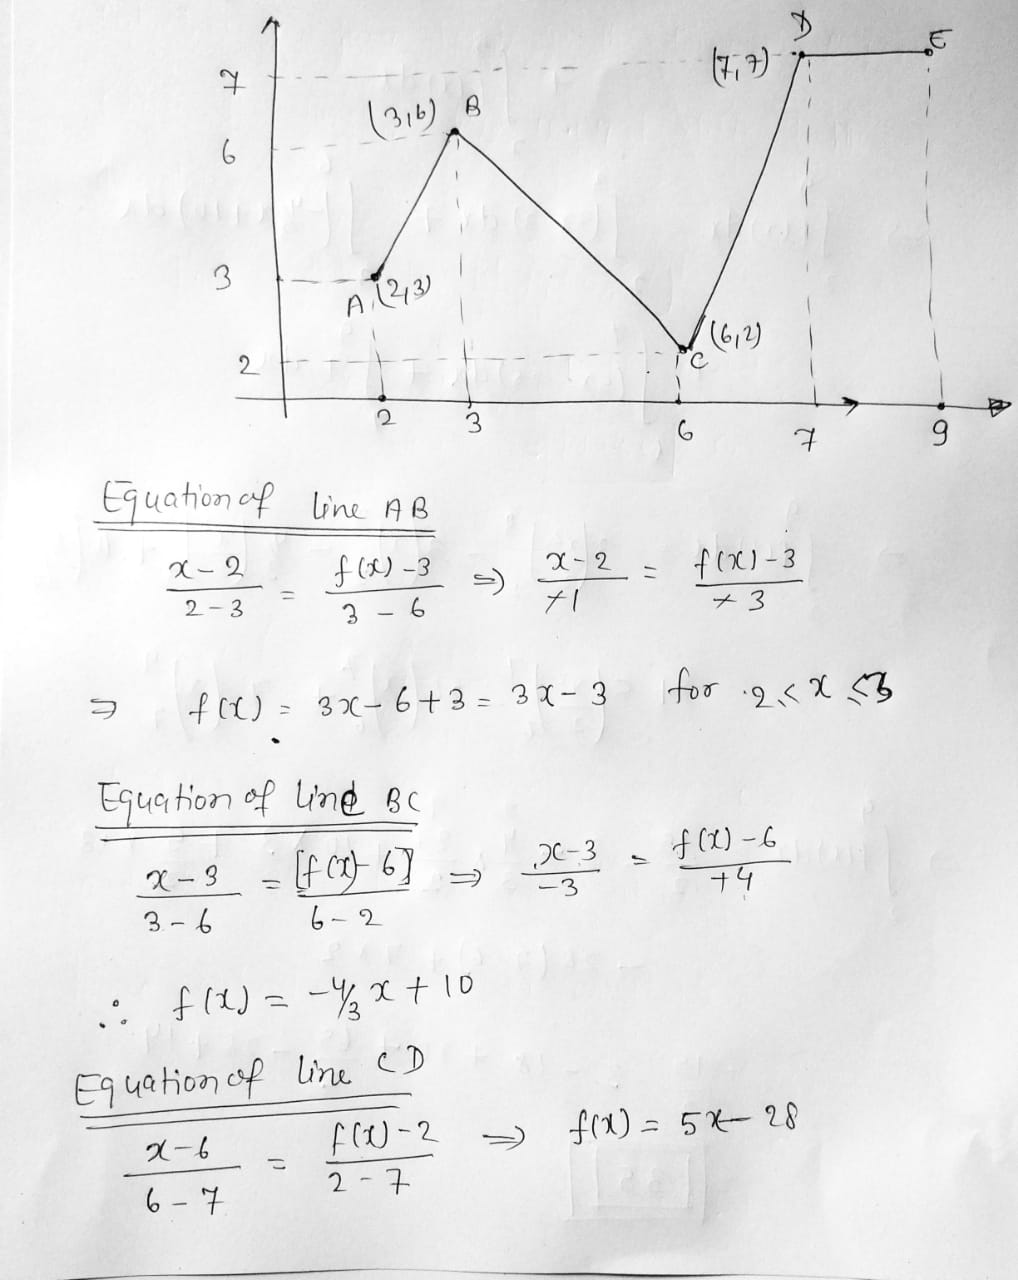 D
E
7
(7,7)
(3,6) B
6
3
A (2,3)
(6,2)
2
C
2 3 6 7 9
Equation of line AB
x-2/2-3 = f(x)-3/3-6 ⇒ x-2/+1 = f(x)-3/+3
⇒ f(x) = 3x-6+3 = 3x-3 for 2≤x≤3
Equation of line BC
x-3/3-6 = [f(x)-6]/6-2 ⇒ x-3/-3 = f(x)-6/+4
∴ f(x) = -4/3 x + 10
Equation of line CD
x-6/6-7 = f(x)-2/2-7 ⇒ f(x) = 5x-28